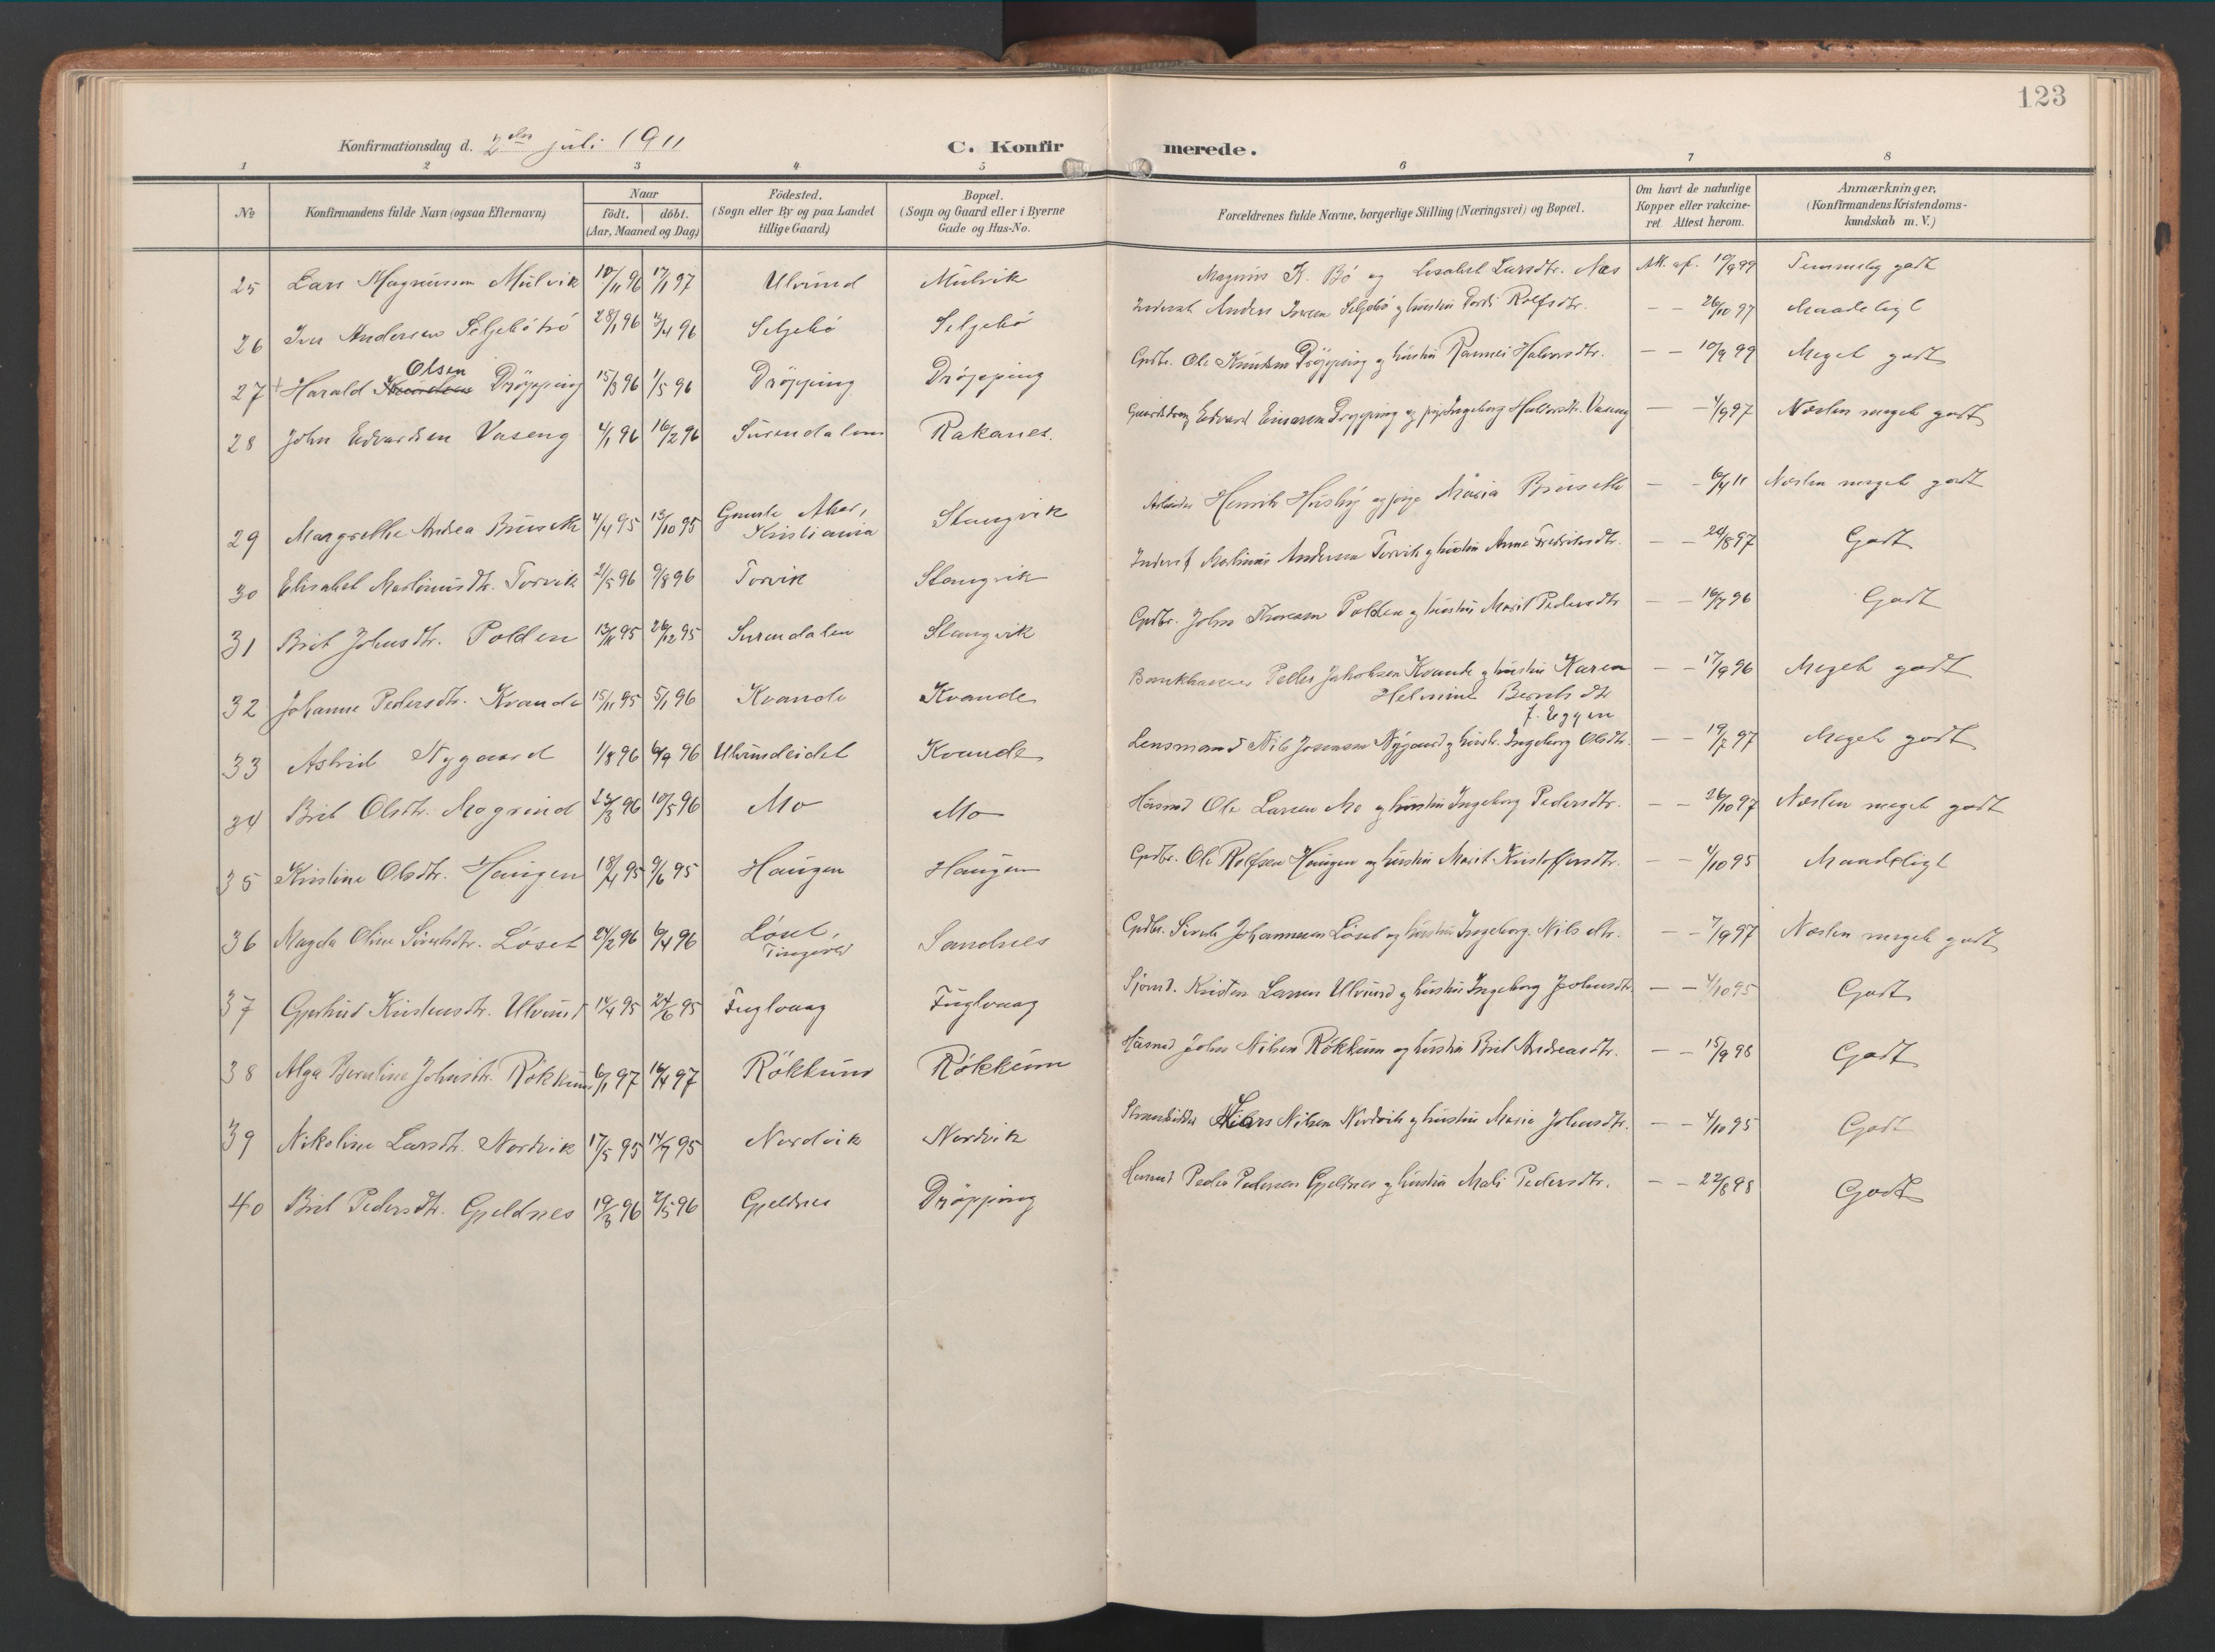 123
Konfirmationsdag d. 2den juli 1911 C. Konfirmerede.
1 2 3 4 5 6 7 8
No Konfirmandens fulde Navn (ogsaa Efternavn) Naar födt. döbt. (Aar, Maaned og Dag) Födested. (Sogn eller By og paa Landet tillige Gaard) Bopæl. (Sogn og Gaard eller i Byerne Gade og Hus-No. Forældrenes fulde Navne, borgerlige Stilling (Næringsvei) og Bopæl. Om havt de naturlige Kopper eller vakcineret. Attest herom. Anmærkninger, (Konfirmandens Kristendomskundskab m.V.)
25 Lars Magnussen Mulvik 10/11 96 17/1 97 Ulvund Mulvik Magnus K. Bö og Lisabet Larsdtr. Næs Att. af. 10/9 99 Temmelig godt
26 Iver Andersen Seljebötrö 28/1 96 3/4 96 Seljebö Seljebö Inderst Anders Iversen Seljebö og hustru Gordi Rolfsdtr. — — 26/10 97 Maadeligt
27 + Harald Knudsen Olsen Dröpping 15/3 96 1/5 96 Dröpping Dröpping Grdbr. Ole Knudsen Dröpping og hustru Rannei Halvorsdtr. — — 10/9 99 Meget godt
28 John Edvardsen Vaseng 4/1 96 16/2 96 Surendalen Rakanes. Gaardsdreng Edvard Einarsen Dröpping og pige Ingeborg Halvorsdtr. Vaseng — — 4/9 97 Næsten meget godt
29 Margrethe Andrea Bruseth 4/4 95 13/10 95 Gamle Aker, Kristiania Stangvik Arbeider Henrik Husby og pige Maria Bruseth — — 6/4 11 Næsten meget godt
30 Elisabet Martinusdtr. Torvik 21/5 96 9/8 96 Torvik Stangvik Inderst Martinus Andersen Torvik og hustru Anne Fredriksdtr. — — 24/8 97 Godt
31 Brit Johnsdtr. Polden 13/11 95 26/12 95 Surendalen Stangvik Grdbr. John Thoresen Polden og hustru Marit Pedersdtr — — 16/7 96 Godt
32 Johanne Pedersdtr. Kvande 15/11 95 5/1 96 Kvande Kvande Peder Jakobsen Kvande og hustru Karen Helmine Berntsdtr f. Eggen — — 17/9 96 Meget godt
33 Astrid Nygaard 1/8 96 6/9 96 Ulvundeidet Kvande Lensmand Nils Josensen Nygaard og hustr. Ingeborg Olsdtr. — — 19/7 97 Meget godt
34 Brit Olsdtr. Mogrind 23/3 96 10/5 96 Mo Mo Husmd Ole Larsen Mo og hustru Ingeborg Pedersdtr. — — 26/10 97 Næsten meget godt
35 Kristine Olsdtr. Haugen 18/4 95 9/6 95 Haugen Haugen Grdbr. Ole Rolfsen Haugen og hustru Marit Kristoffersdtr. — — 4/10 95 Maadeligt
36 Magda Oline Sivertsdtr. Löset 24/2 96 6/4 96 Löset, Tingvold Sandnes Grdbr. Sivert Johannesen Löset og hustru Ingeborg Nilsdtr. — — 7/9 97 Næsten meget godt
37 Gjertrud Kristensdtr. Ulvund 14/4 95 24/6 95 Fuglvaag Fuglvaag Sjömd. Kristen Larsen Ulvund og hustru Ingeborg Johnsdtr. — — 4/10 95 Godt
38 Alga Bernline Johnsdtr. Rökkum 6/1 97 16/4 97 Rökkum Rökkum Husmd John Nilsen Rökkum og hustru Brit Andreasdtr. — — 15/9 98 Godt
39 Nikoline Larsdtr. Nordvik 17/5 95 14/7 95 Nordvik Nordvik Strandsidder Lars Nilsen Nordvik og hustru Marie Johnsdtr. — — 4/10 95 Godt
40 Brit Pedersdtr. Gjeldnes 19/3 96 2/5 96 Gjeldnes Dröpping Husmd Peder Pedersen Gjeldnes og hustru Mali Pedersdtr. — — 22/8 98 Godt